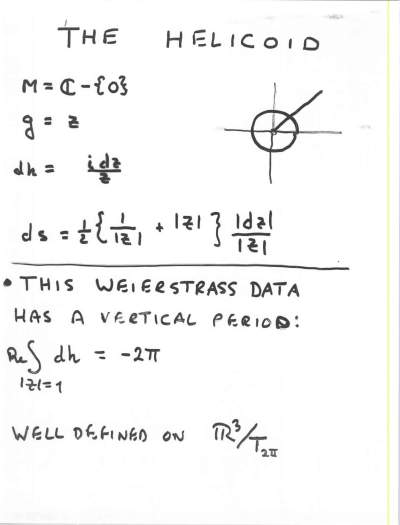 THE HELICOID
M = ℂ - {0}
g = z
dh = i dz / z
ds = 1/2 { 1/|z| + |z| } |dz|/|z|
• THIS WEIERSTRASS DATA
HAS A VERTICAL PERIOD:
Re ∫ dh = -2π
|z|=1
WELL DEFINED ON ℝ³/T₂π